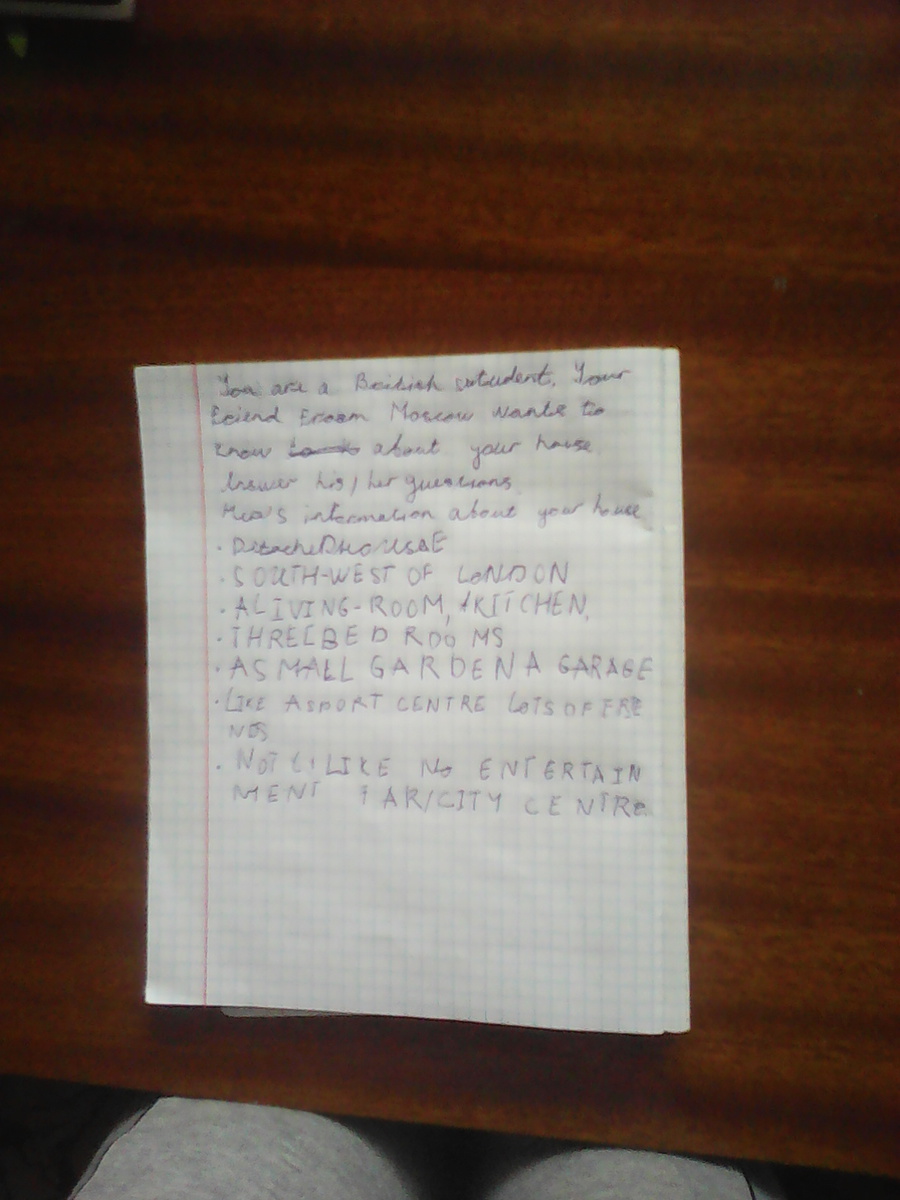 You are a British sutudent. Your
Friend Froom Moscow wants to
know about your house
Answer his/her questions
Here's information about your house
· DetacheDHOUSAE
· SOUTH-WEST OF LONDON
· A LIVING-ROOM, KITCHEN,
· THREEBED ROOMS
· A SMALL GARDEN A GARAGE
· LIKE A SPORT CENTRE LOTS OF FRE
NDS
· NOT LIKE NO ENTERTAIN
MENT FAR/CITY CENTRE